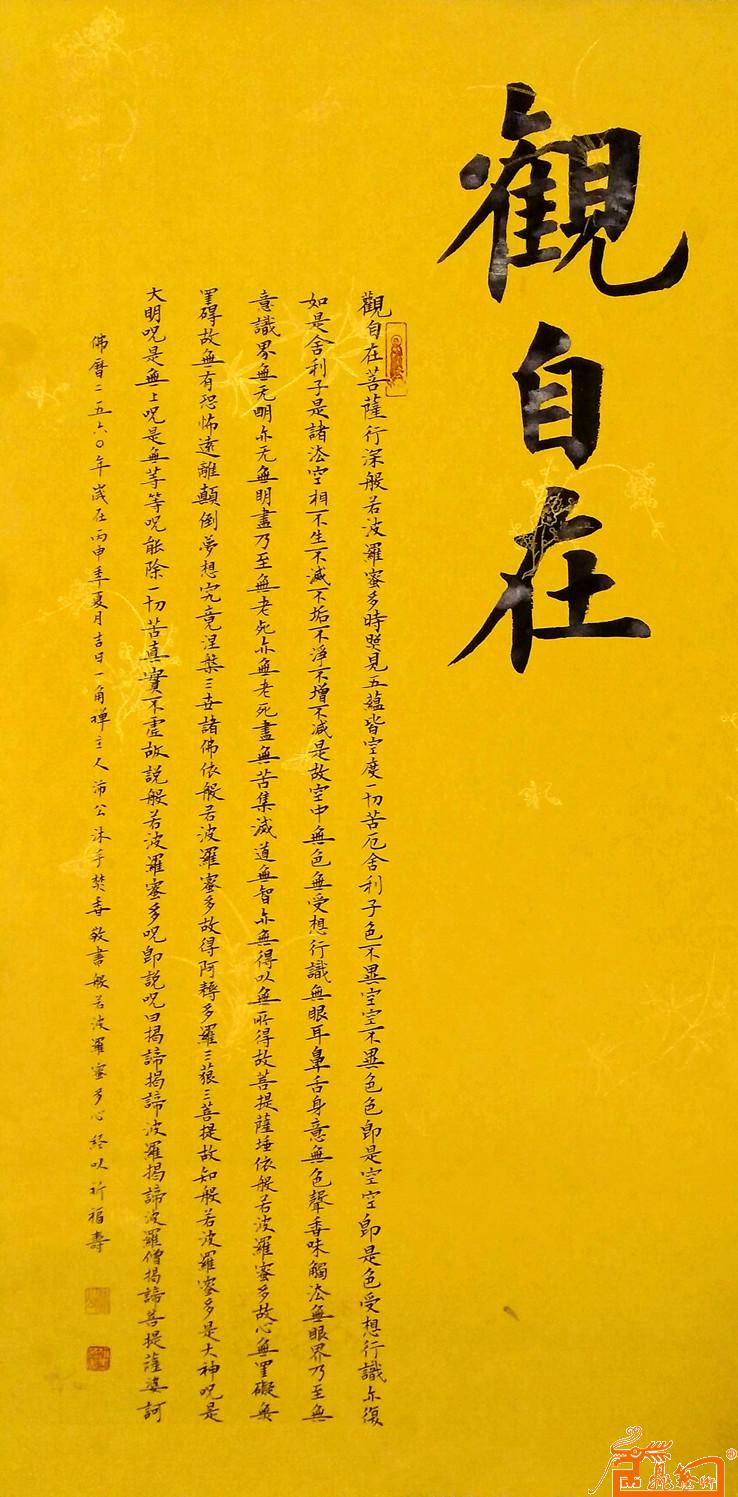 觀自在
觀自在菩薩行深般若波羅蜜多時照見五蘊皆空度一切苦厄舍利子色不異空空不異色色即是空空即是色受想行識亦復
如是舍利子是諸法空相不生不滅不垢不淨不增不减是故空中無色無受想行識無眼耳鼻舌身意無色聲香味觸法無眼界乃至無
意識界無无明亦无無明盡乃至無老死亦無老死盡無苦集滅道無智亦無得以無所得故菩提薩埵依般若波羅蜜多故心無罣礙無
罣碍故無有恐怖遠離顛倒夢想究竟涅槃三世諸佛依般若波羅蜜多故得阿耨多羅三藐三菩提故知般若波羅蜜多是大神呪是
大明呪是無上呪是無等等呪能除一切苦真實不虛故説般若波羅蜜多呪即説呪曰揭諦揭諦波羅揭諦波羅僧揭諦菩提薩婆訶
佛曆二五六〇年歲在丙申季夏月吉日一角禅主人沛公沐手焚香敬書般若波羅蜜多心經以祈福壽